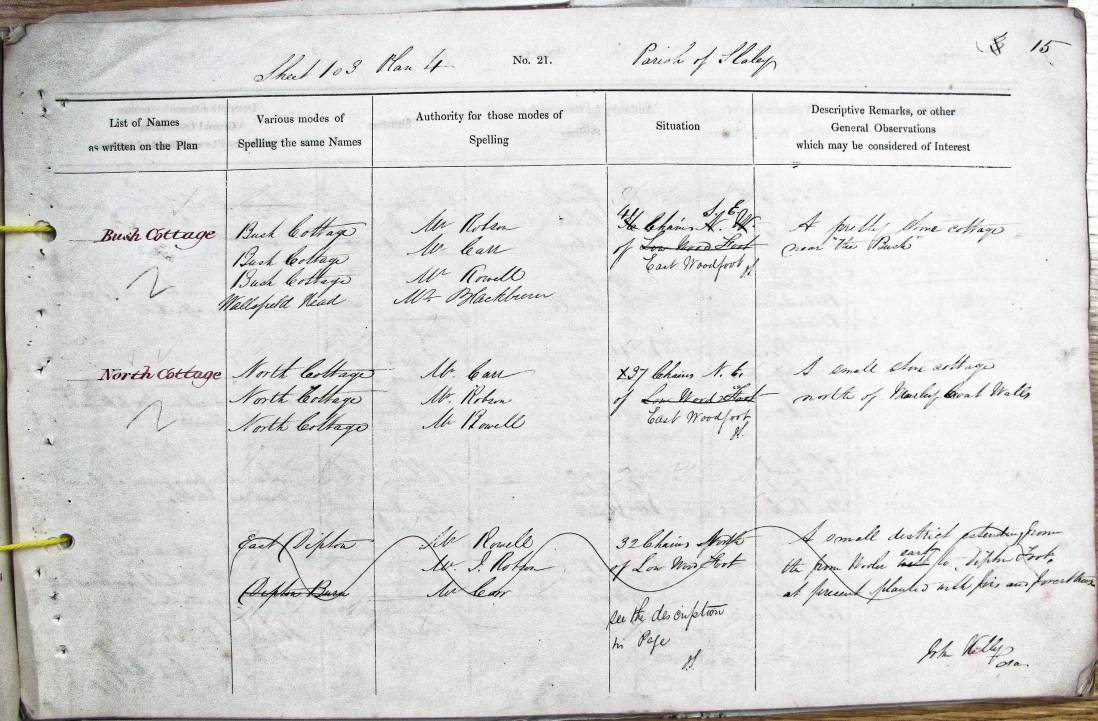 15
Sheet 103 Plan 4 No. 21. Parish of Slaley
List of Names
as written on the Plan
Various modes of
Spelling the same Names
Authority for those modes of
Spelling
Situation
Descriptive Remarks, or other
General Observations
which may be considered of Interest
Bush Cottage
Bush Cottage
Bush Cottage
Bush Cottage
Wallsfield Head
Mr Robson
Mr Carr
Mr Rowell
Mr Blackburn
S. E.
41 Chains N. W.
of Low Wood Foot
East Woodfoot
A pretty stone cottage
near "the Bush"
North Cottage
North Cottage
North Cottage
North Cottage
Mr Carr
Mr Robson
Mr Rowell
37 Chains N. E.
of Low Wood Foot
East Woodfoot
A small stone cottage
north of Morley Coat Walls
East Dipton
Dipton Burn
Mr Rowell
Mr J. Robson
Mr Carr
32 Chains North
of Low Wood Foot
see the description
in Page
A small district extending from
the from east to Dipton Foot,
at present planted with firs and forest trees
John Kelly